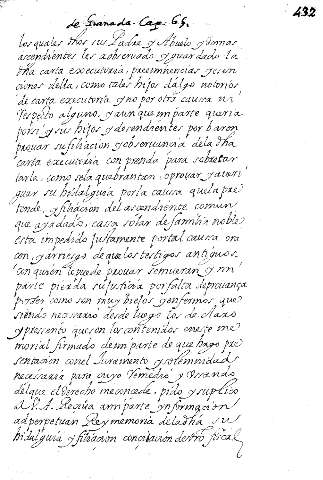 de Granada. Cap. 65.
432
los quales dhos su Padre, y Abuelo, y demas
ascendientes les a observado y guardado la
dha carta executoria, preeminencias y esen
ciones della, como tales hijos dalgo notorios,
de carta executoria y no por otra causa ni
respeto alguno, y aunque mi parte queria
por si y sus hijos y descendientes por baron
provar su filiacion y observancia de la dha
carta executoria con prenda para sobre tar
tarla, como se la quebrantan, o provar y averi
guar su hidalguia por la causa que la pre
tende, y filiacion del ascendiente comun
que a y a dado, cassa solar de familia noble
esta impedido justamente por tal causa
con, y a riesgo de que los testigos antiguos,
con quien le puede provar se mueran y mi
parte pierda su justicia por falta de provança
por ser como son muy biejos y enfermos, que
siendo necessario desde luego los declaro
y presento que son los contenidos en este me
morial firmado de mi parte de que hago pre
sentacion con el Juramento y solemnidad
necessaria para cuyo Remedio y Usando
del que el derecho me concede, pido y suplico
a V. A. Reciva a mi parte ynformacion
ad perpetuan Rey memoria de la dha su
hidalguia y filiacion con citacion de stro fiscal